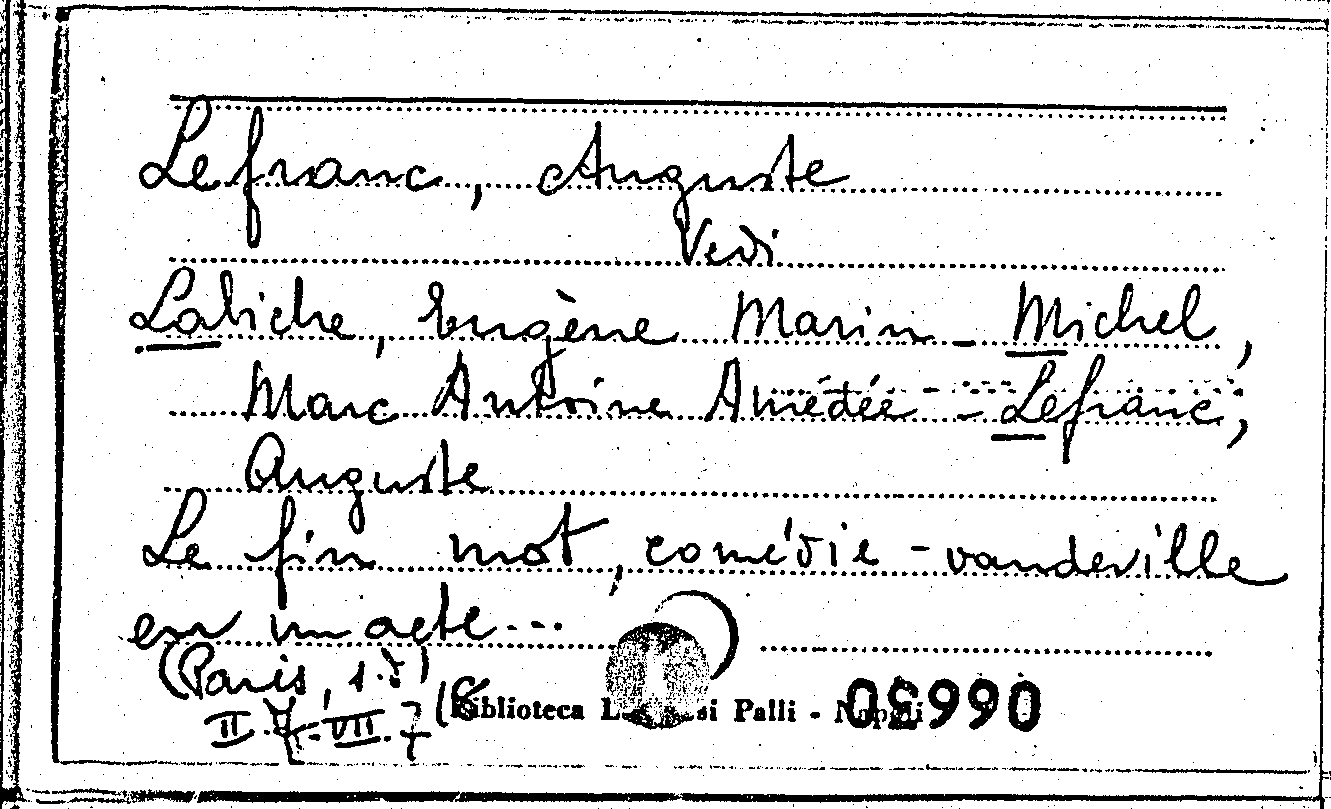 Lefranc, Auguste
Vedi
Labiche, Eugène Marin - Michel,
Marc Antoine Amédée - Lefranc,
Auguste
Le fin mot, comédie-vaudeville
en un acte...
(Paris, 1.d)
II.7.VII.7 (8
Biblioteca Lucchesi Palli - Napoli